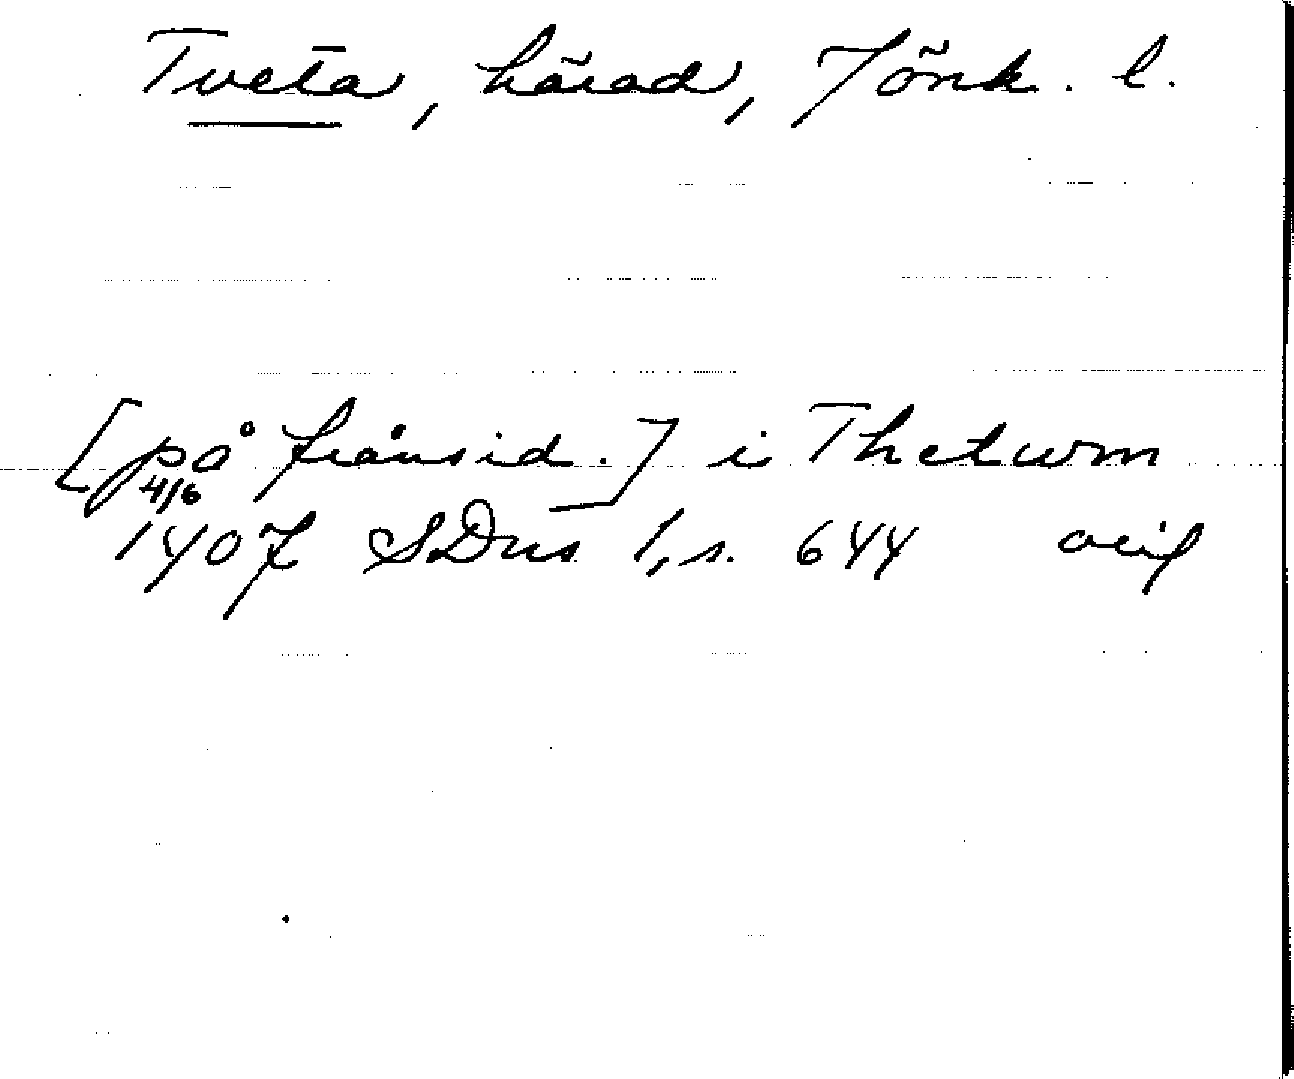 Tveta, härad, Jönk. l.
[på frånsid.] i Thetwm
4/6
1407 SDns 1, s. 644 orig